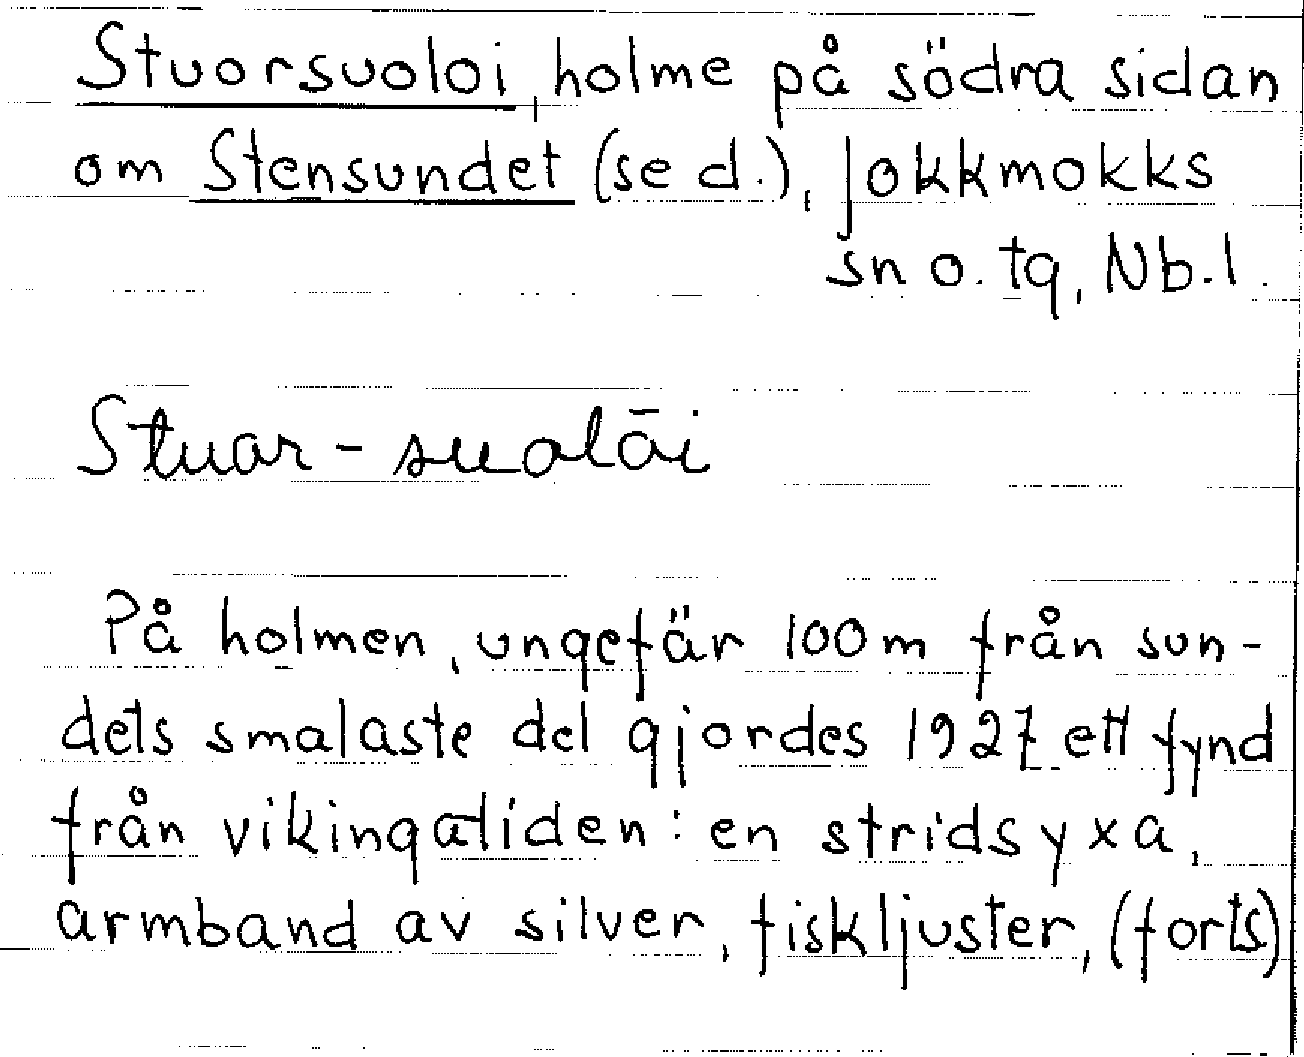 Stuorsuoloi, holme på södra sidan
om Stensundet (se d.), Jokkmokks
sn o. tg, Nb.l.
Stuar-sualāi
På holmen, ungefär 100 m från sun-
dets smalaste del gjordes 1927 ett fynd
från vikingatiden: en stridsyxa,
armband av silver, fiskljuster, (forts)